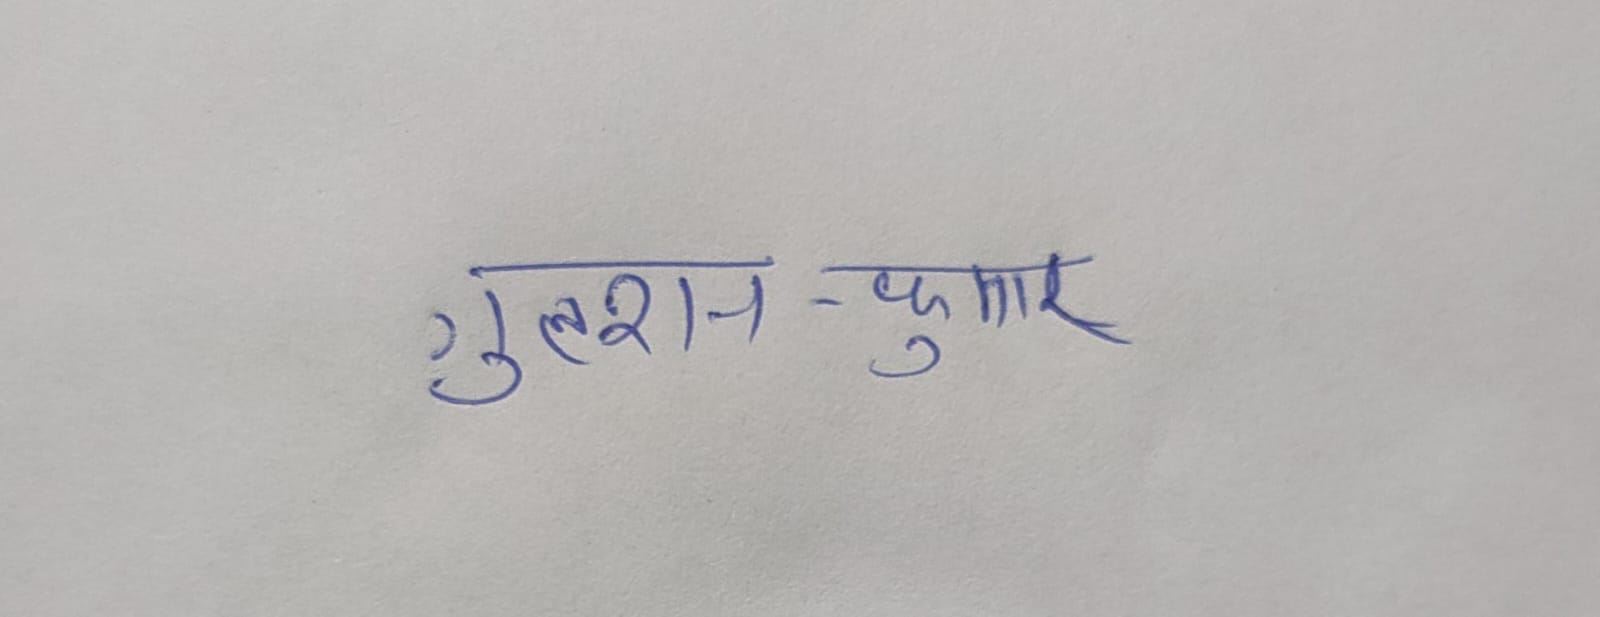 गुलशन - कुमार